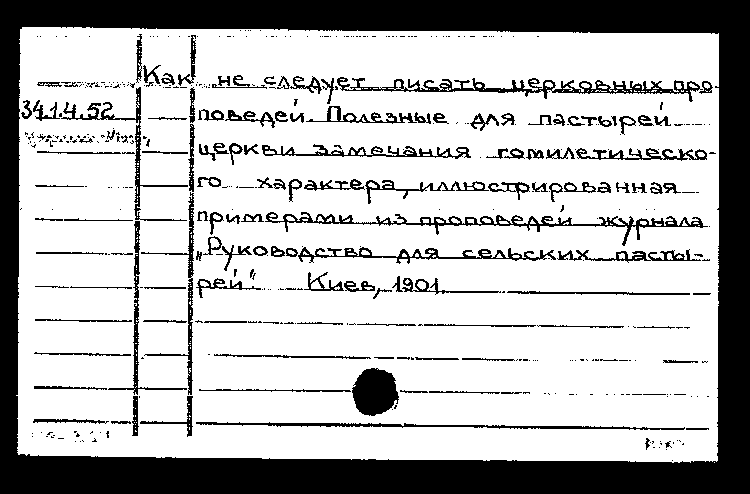 Как не следует писать церковных про-
34.1.4.52
поведей. Полезные для пастырей
церкви замечания гомилетическо-
го характера, иллюстрированная
примерами из проповедей журнала
„Руководство для сельских пасты-
рей“. Киев, 1901.